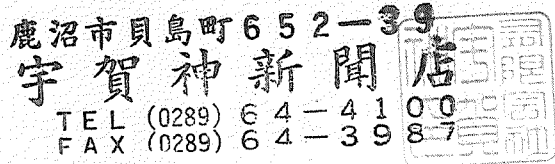 鹿沼市貝島町652-39
宇賀神新聞店
TEL (0289) 64-4100
FAX (0289) 64-3987